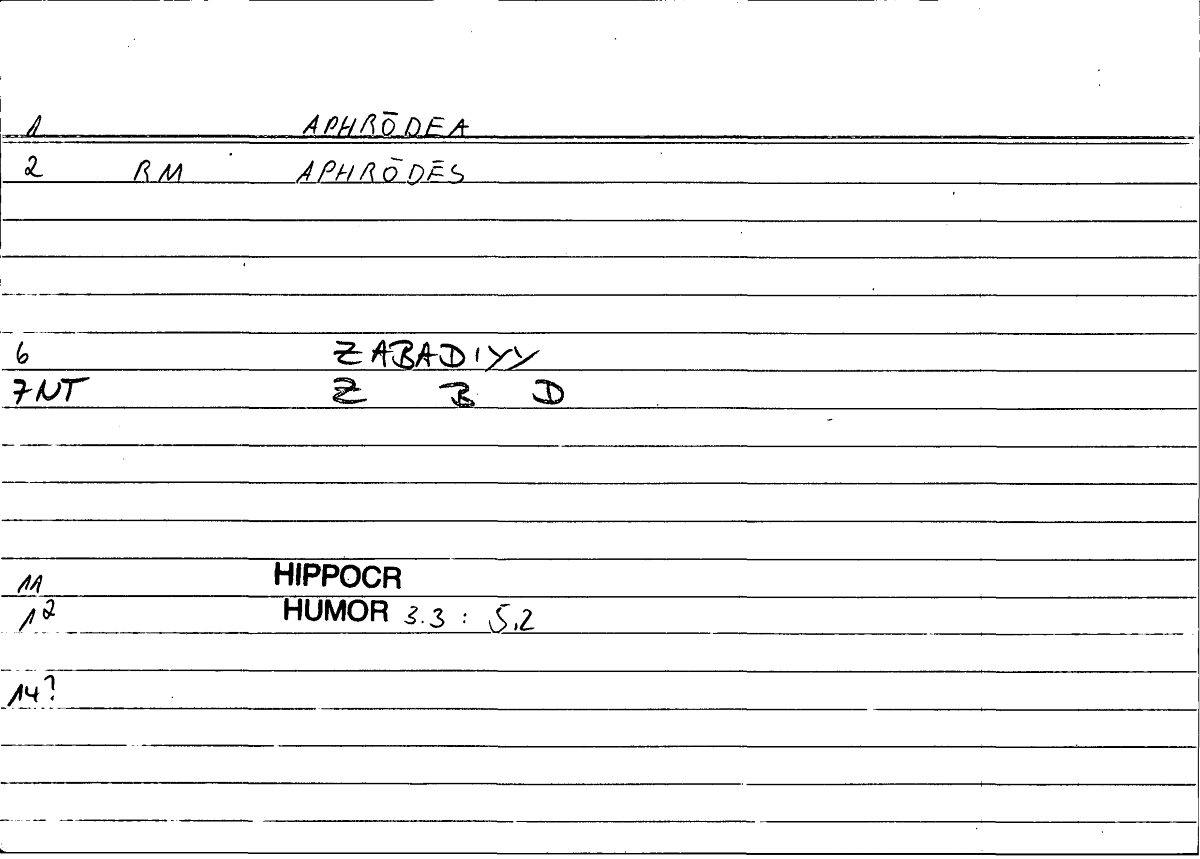 1 APHRŌDEA
2 RM APHRŌDĒS
6 ZABADIYY
7NT Z B D
11 HIPPOCR
12 HUMOR 3.3 : 5,2
14?